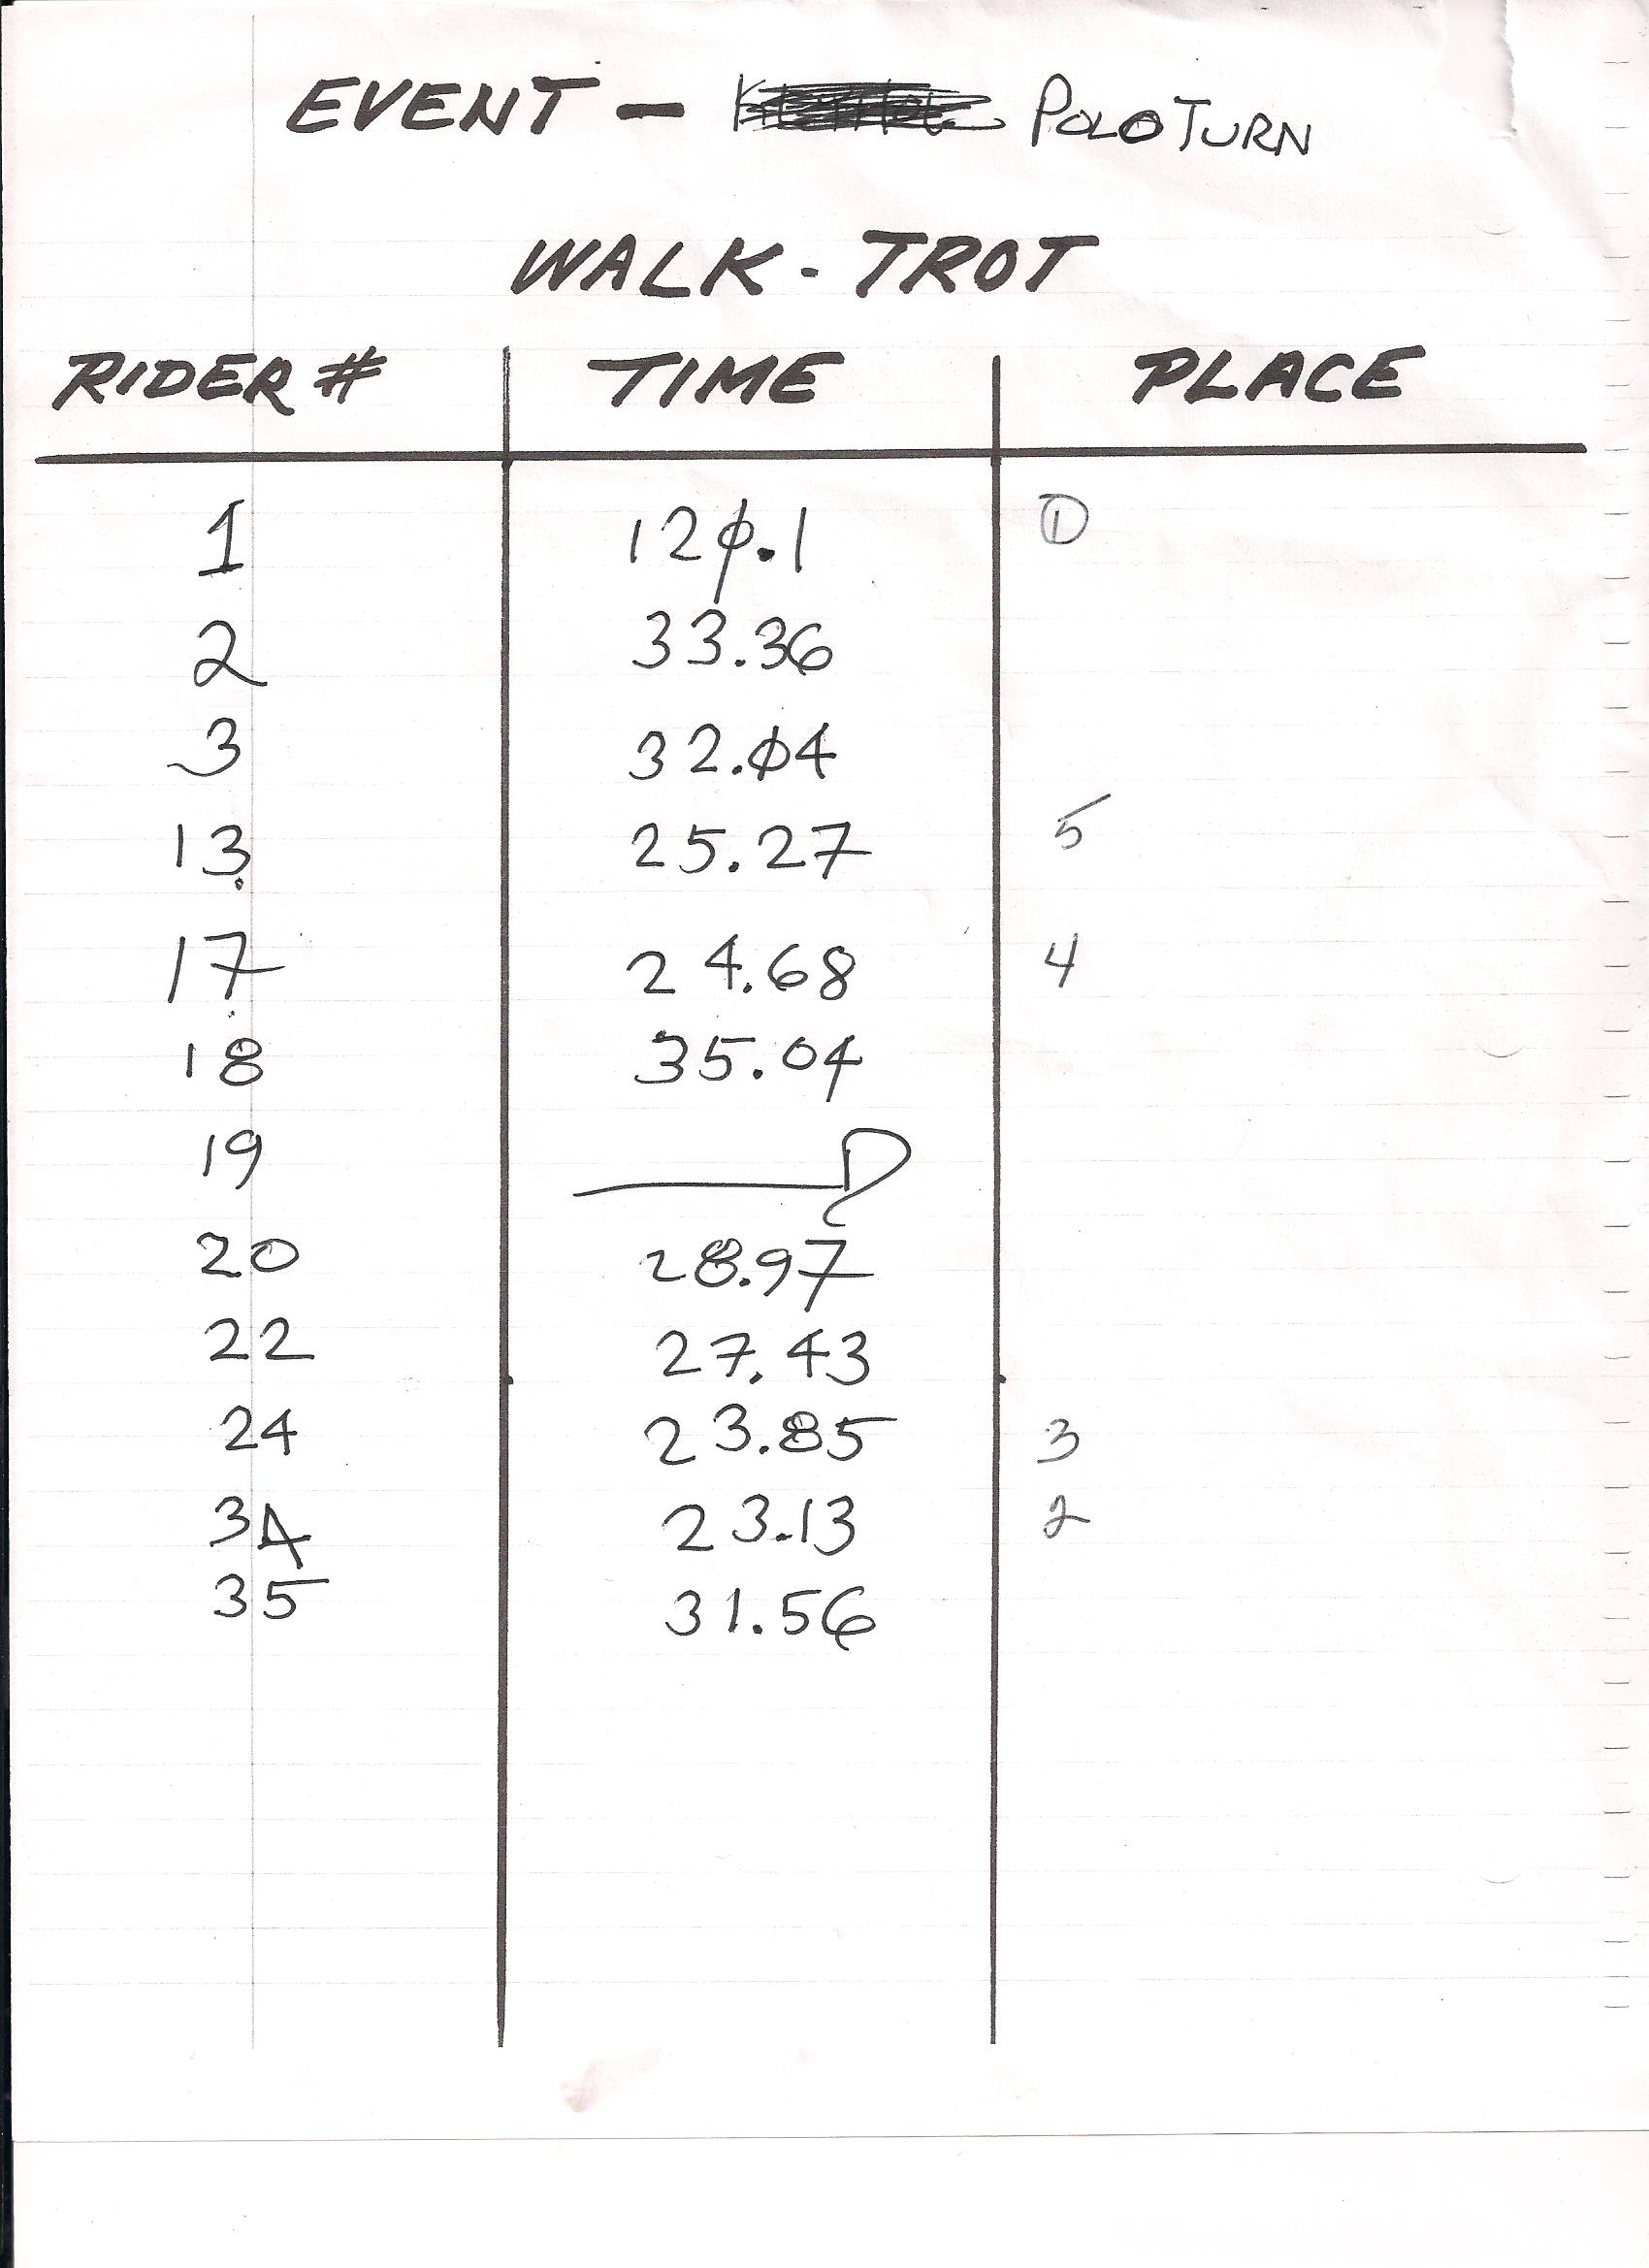 EVENT - POLO TURN
WALK - TROT
RIDER # TIME PLACE
1 120.1 1
2 33.36
3 32.04
13 25.27 5
17 24.68 4
18 35.04
19
20 28.97
22 27.43
24 23.85 3
34 23.13 2
35 31.56